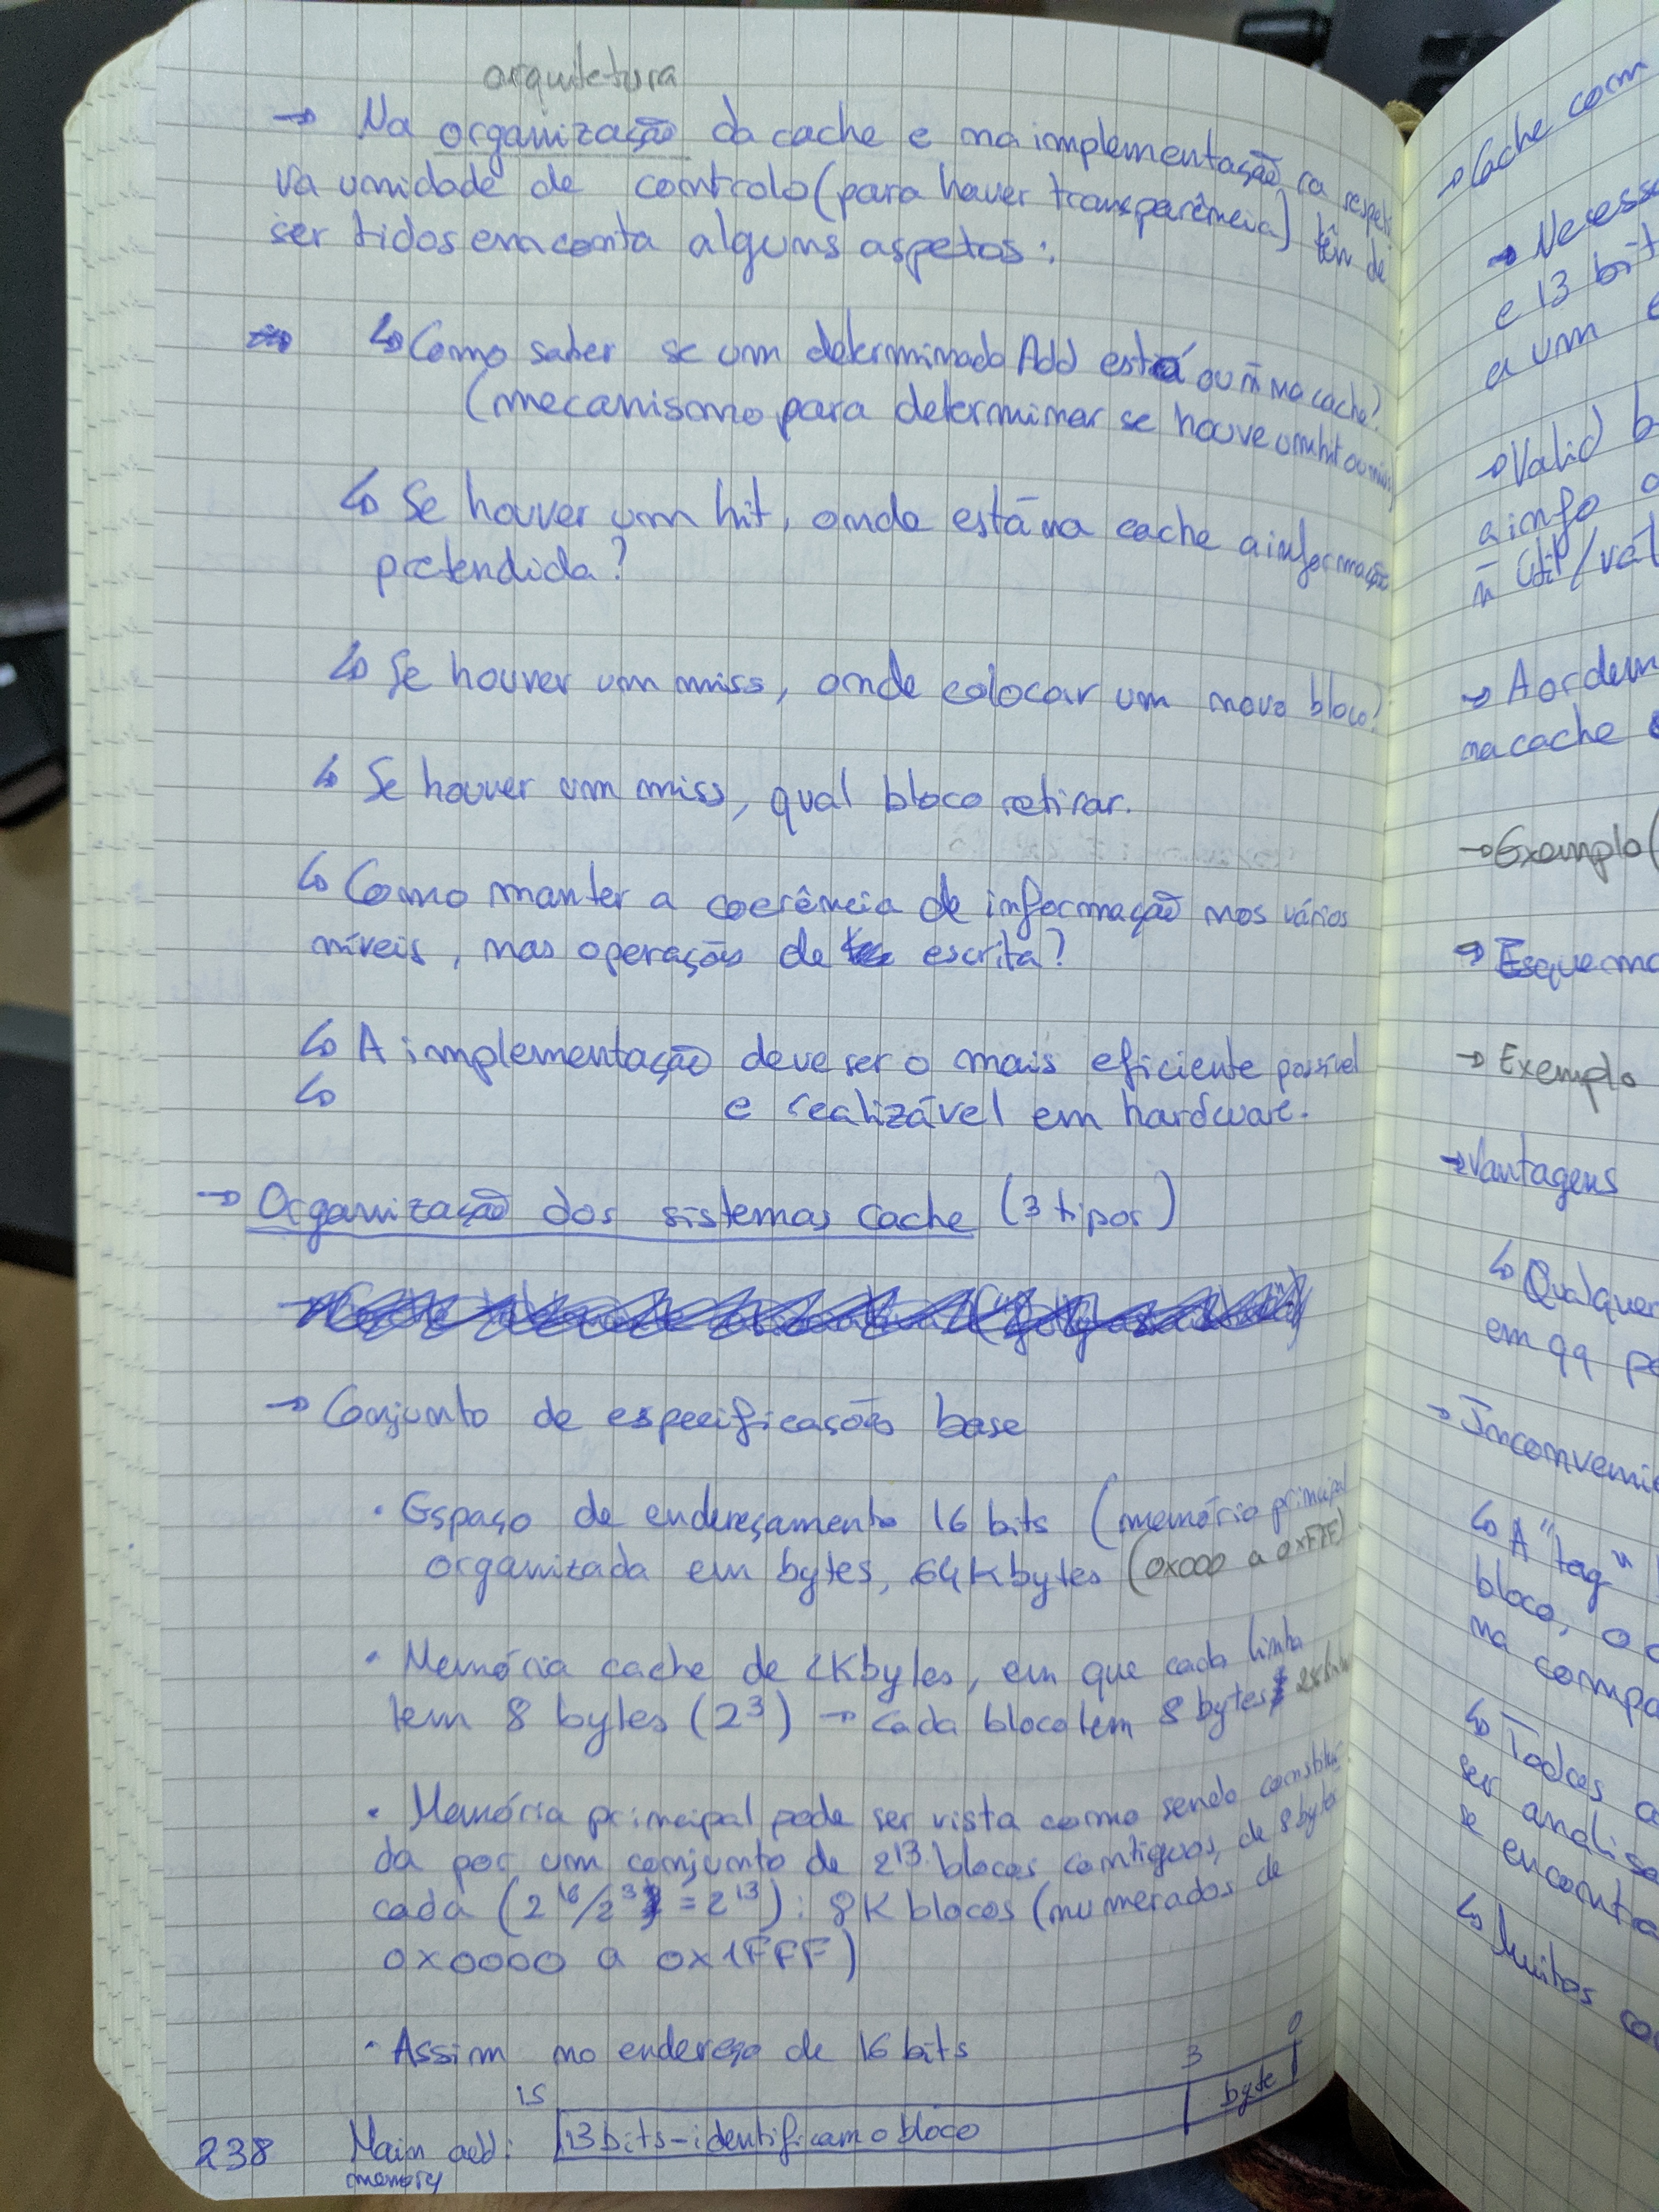 arquitetura
→ Na organização da cache e na implementação
va unidade de controlo (para haver transparência) têm de
ser tidos em conta alguns aspetos:
↳ Como saber se um determinado Add está ou ñ na cache?
(mecanismo para determinar se houve um hit ou miss)
↳ Se houver um hit, onde está na cache a informação
pretendida?
↳ Se houver um miss, onde colocar um novo bloco?
↳ Se houver um miss, qual bloco retirar.
↳ Como manter a coerência de informação nos vários
níveis, nas operações de escrita?
↳ A implementação deve ser o mais eficiente possível
↳ e realizável em hardware.
→ Organização dos sistemas cache (3 tipos)
→ Conjunto de especificações base
• Espaço de endereçamento 16 bits (memória principal
organizada em bytes, 64Kbytes (0x000 a 0xFFF)
• Memória cache de 2Kbytes, em que cada linha
tem 8 bytes (2³) → cada bloco tem 8 bytes
• Memória principal pode ser vista como sendo constituí
da por um conjunto de 2¹³ blocos contíguos, de 8 bytes
cada (2¹⁶/2³ = 2¹³): 8K blocos (numerados de
0x0000 a 0x1FFF)
• Assim no endereço de 16 bits
15 3 0
Main add: 13 bits - identificam o bloco byte
memory
238
→ Cache com
→ Necess
e 13 bit
a um
→ Valid b
a info
ñ útil/vál
→ A ordem
na cache
→ Exemplo (
→ Esquema
→ Exemplo
→ Vantagens
↳ Qualquer
em qq po
→ Inconvenie
↳ A "tag"
bloco, o
na compa
↳ Todas a
ser analisa
se encontra
↳ Muitos co